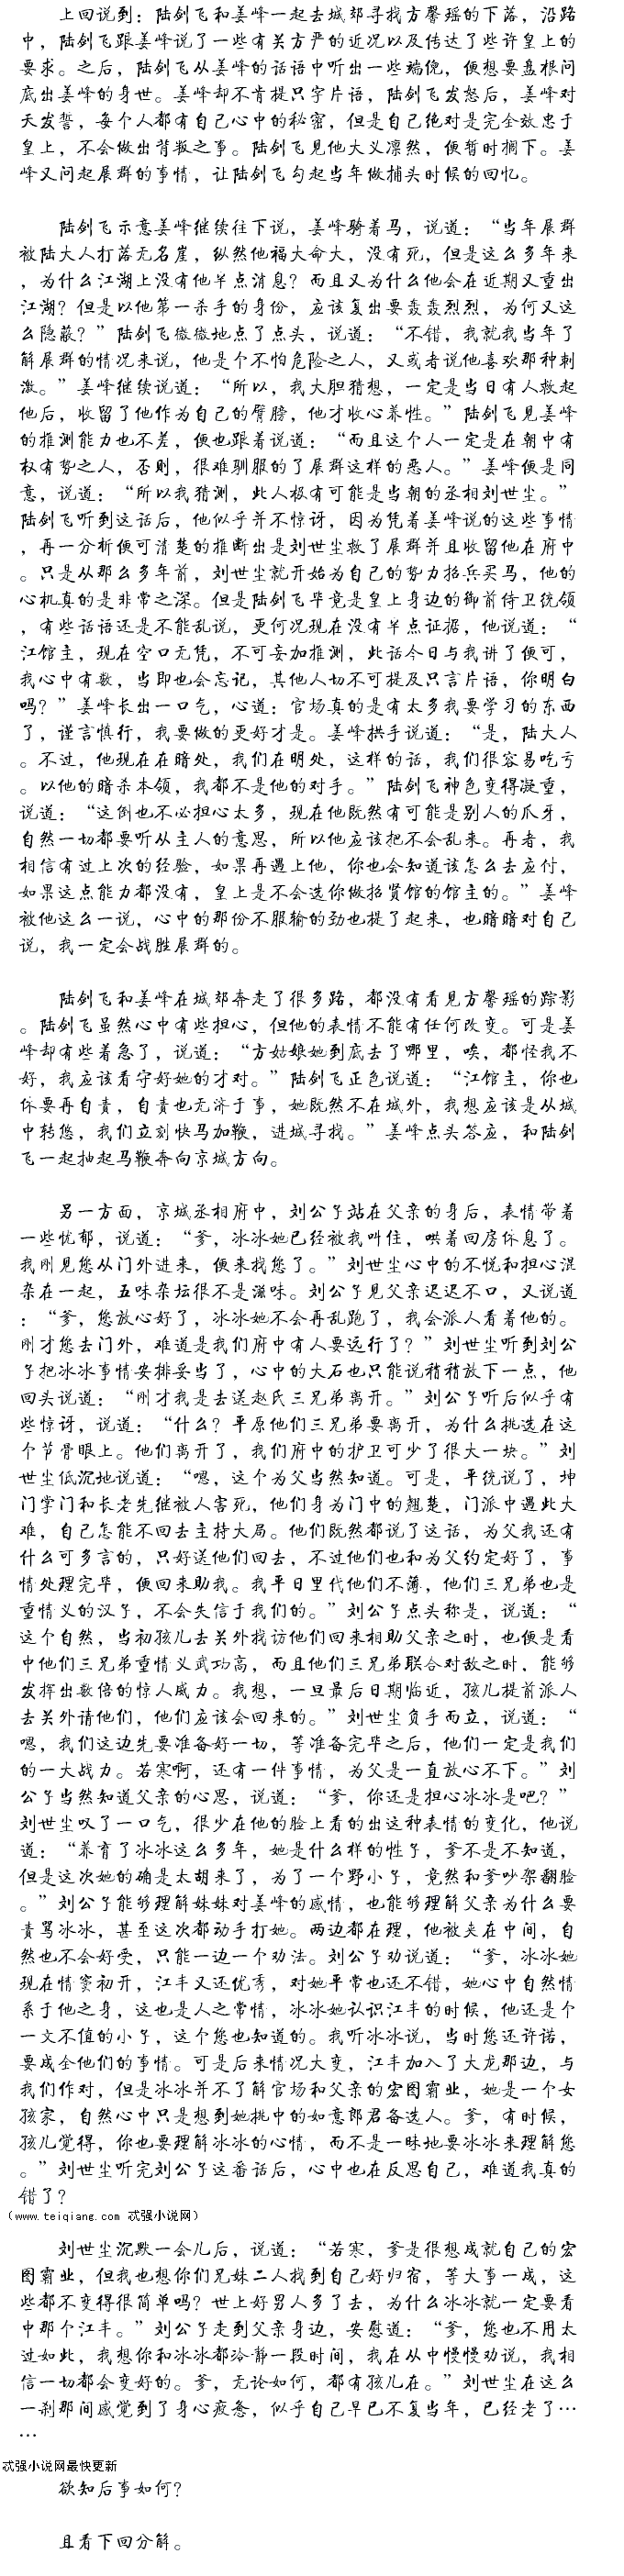 上回说到：陆剑飞和姜峰一起去城郊寻找方馨瑶的下落，沿路
中，陆剑飞跟姜峰说了一些有关方严的近况以及传达了些许皇上的
要求。之后，陆剑飞从姜峰的话语中听出一些端倪，便想要盘根问
底出姜峰的身世。姜峰却不肯提只字片语，陆剑飞发怒后，姜峰对
天发誓，每个人都有自己心中的秘密，但是自己绝对是完全效忠于
皇上，不会做出背叛之事。陆剑飞见他大义凛然，便暂时搁下。姜
峰又问起展群的事情，让陆剑飞勾起当年做捕头时候的回忆。
陆剑飞示意姜峰继续往下说，姜峰骑着马，说道：“当年展群
被陆大人打落无名崖，纵然他福大命大，没有死，但是这么多年来
，为什么江湖上没有他半点消息？而且又为什么他会在近期又重出
江湖？但是以他第一杀手的身份，应该复出要轰轰烈烈，为何又这
么隐蔽？”陆剑飞微微地点了点头，说道：“不错，我就我当年了
解展群的情况来说，他是个不怕危险之人，又或者说他喜欢那种刺
激。”姜峰继续说道：“所以，我大胆猜想，一定是当日有人救起
他后，收留了他作为自己的臂膀，他才收心养性。”陆剑飞见姜峰
的推测能力也不差，便也跟着说道：“而且这个人一定是在朝中有
权有势之人，否则，很难驯服的了展群这样的恶人。”姜峰便是同
意，说道：“所以我猜测，此人极有可能是当朝的丞相刘世尘。”
陆剑飞听到这话后，他似乎并不惊讶，因为凭着姜峰说的这些事情
，再一分析便可清楚的推断出是刘世尘救了展群并且收留他在府中
。只是从那么多年前，刘世尘就开始为自己的势力招兵买马，他的
心机真的是非常之深。但是陆剑飞毕竟是皇上身边的御前侍卫统领
，有些话语还是不能乱说，更何况现在没有半点证据，他说道：“
江馆主，现在空口无凭，不可妄加推测，此话今日与我讲了便可，
我心中有数，当即也会忘记，其他人切不可提及只言片语，你明白
吗？”姜峰长出一口气，心道：官场真的是有太多我要学习的东西
了，谨言慎行，我要做的更好才是。姜峰拱手说道：“是，陆大人
。不过，他现在在暗处，我们在明处，这样的话，我们很容易吃亏
。以他的暗杀本领，我都不是他的对手。”陆剑飞神色变得凝重，
说道：“这倒也不必担心太多，现在他既然有可能是别人的爪牙，
自然一切都要听从主人的意思，所以他应该把不会乱来。再者，我
相信有过上次的经验，如果再遇上他，你也会知道该怎么去应付，
如果这点能力都没有，皇上是不会选你做招贤馆的馆主的。”姜峰
被他这么一说，心中的那份不服输的劲也提了起来，也暗暗对自己
说，我一定会战胜展群的。
陆剑飞和姜峰在城郊奔走了很多路，都没有看见方馨瑶的踪影
。陆剑飞虽然心中有些担心，但他的表情不能有任何改变。可是姜
峰却有些着急了，说道：“方姑娘她到底去了哪里，唉，都怪我不
好，我应该看守好她的才对。”陆剑飞正色说道：“江馆主，你也
休要再自责，自责也无济于事，她既然不在城外，我想应该是从城
中转悠，我们立刻快马加鞭，进城寻找。”姜峰点头答应，和陆剑
飞一起抽起马鞭奔向京城方向。
另一方面，京城丞相府中，刘公子站在父亲的身后，表情带着
一些忧郁，说道：“爹，冰冰她已经被我叫住，哄着回房休息了。
我刚见您从门外进来，便来找您了。”刘世尘心中的不悦和担心混
杂在一起，五味杂坛很不是滋味。刘公子见父亲迟迟不口，又说道
：“爹，您放心好了，冰冰她不会再乱跑了，我会派人看着他的。
刚才您去门外，难道是我们府中有人要远行了？”刘世尘听到刘公
子把冰冰事情安排妥当了，心中的大石也只能说稍稍放下一点，他
回头说道：“刚才我是去送赵氏三兄弟离开。”刘公子听后似乎有
些惊讶，说道：“什么？平原他们三兄弟要离开，为什么挑选在这
个节骨眼上。他们离开了，我们府中的护卫可少了很大一块。”刘
世尘低沉地说道：“嗯，这个为父当然知道。可是，平统说了，坤
门掌门和长老先继被人害死，他们身为门中的翘楚，门派中遇此大
难，自己怎能不回去主持大局。他们既然都说了这话，为父我还有
什么可多言的，只好送他们回去，不过他们也和为父约定好了，事
情处理完毕，便回来助我。我平日里代他们不薄，他们三兄弟也是
重情义的汉子，不会失信于我们的。”刘公子点头称是，说道：“
这个自然，当初孩儿去关外找访他们回来相助父亲之时，也便是看
中他们三兄弟重情义武功高，而且他们三兄弟联合对敌之时，能够
发挥出数倍的惊人威力。我想，一旦最后日期临近，孩儿提前派人
去关外请他们，他们应该会回来的。”刘世尘负手而立，说道：“
嗯，我们这边先要准备好一切，等准备完毕之后，他们一定是我们
的一大战力。若寒啊，还有一件事情，为父是一直放心不下。”刘
公子当然知道父亲的心思，说道：“爹，你还是担心冰冰是吧？”
刘世尘叹了一口气，很少在他的脸上看的出这种表情的变化，他说
道：“养育了冰冰这么多年，她是什么样的性子，爹不是不知道，
但是这次她的确是太胡来了，为了一个野小子，竟然和爹吵架翻脸
。”刘公子能够理解妹妹对姜峰的感情，也能够理解父亲为什么要
责骂冰冰，甚至这次都动手打她。两边都在理，他被夹在中间，自
然也不会好受，只能一边一个劝法。刘公子劝说道：“爹，冰冰她
现在情窦初开，江丰又还优秀，对她平常也还不错，她心中自然情
系于他之身，这也是人之常情，冰冰她认识江丰的时候，他还是个
一文不值的小子，这个您也知道的。我听冰冰说，当时您还许诺，
要成全他们的事情。可是后来情况大变，江丰加入了大龙那边，与
我们作对，但是冰冰并不了解官场和父亲的宏图霸业，她是一个女
孩家，自然心中只是想到她挑中的如意郎君备选人。爹，有时候，
孩儿觉得，你也要理解冰冰的心情，而不是一昧地要冰冰来理解您
。”刘世尘听完刘公子这番话后，心中也在反思自己，难道我真的
错了？
（www.teiqiang.com 忒强小说网）
刘世尘沉默一会儿后，说道：“若寒，爹是很想成就自己的宏
图霸业，但我也想你们兄妹二人找到自己好归宿，等大事一成，这
些都不变得很简单吗？世上好男人多了去，为什么冰冰就一定要看
中那个江丰。”刘公子走到父亲身边，安慰道：“爹，您也不用太
过如此，我想你和冰冰都冷静一段时间，我在从中慢慢劝说，我相
信一切都会变好的。爹，无论如何，都有孩儿在。”刘世尘在这么
一刹那间感觉到了身心疲惫，似乎自己早已不复当年，已经老了…
…
忒强小说网最快更新
欲知后事如何？
且看下回分解。